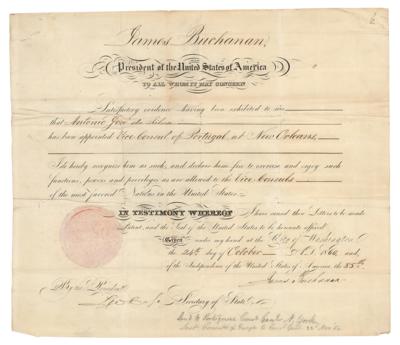 James Buchanan,
President of the United States of America
TO ALL WHOM IT MAY CONCERN
Satisfactory evidence having been exhibited to me
that Antonio José da Silva
has been appointed Vice Consul of Portugal, at New Orleans,
I do hereby recognize him as such, and declare him free to exercise and enjoy such
functions, powers and privileges as are allowed to the Vice Consuls
of the most favored Nations in the United States.
IN TESTIMONY WHEREOF I have caused these Letters to be made
Patent, and the Seal of the United States to be hereunto affixed
Given under my hand at the City of Washington
the 24th day of October A.D. 1860 and,
of the Independence of the United States of America, the 85th.
James Buchanan
By the President
Secretary of State